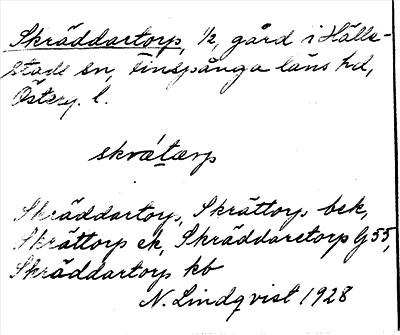 Skräddartorp, 1/2, gård i Hälle-
stads sn, Finspånga läns hd,
Österg. l.
skrátærp
Skräddartorp, Skrättorp bek,
Skrättorp ek, Skräddaretorp G55,
Skräddartorp kb
N. Lindqvist 1928